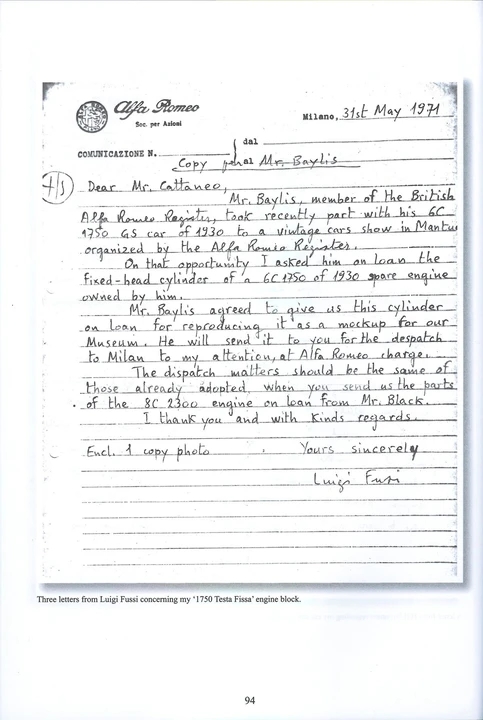 Alfa Romeo
Soc. per Azioni
Milano, 31st May 1971
dal
COMUNICAZIONE N.
al
Copy for Mr. Baylis
Dear Mr. Cattaneo,
Mr. Baylis, member of the British
Alfa Romeo Register, took recently part with his 6C
1750 GS car of 1930 to a vintage cars show in Mantua
organized by the Alfa Romeo Register.
On that opportunity I asked him on loan the
fixed-head cylinder of a 6C 1750 of 1930 spare engine
owned by him.
Mr. Baylis agreed to give us this cylinder
on loan for reproducing it as a mockup for our
Museum. He will send it to you for the despatch
to Milan to my attention, at Alfa Romeo charge.
The dispatch matters should be the same of
those already adopted, when you send us the parts
of the 8C 2300 engine on loan from Mr. Black.
I thank you and with Kinds regards.
Encl. 1 copy photo
Yours sincerely
Luigi Fusi
Three letters from Luigi Fussi concerning my '1750 Testa Fissa' engine block.
94